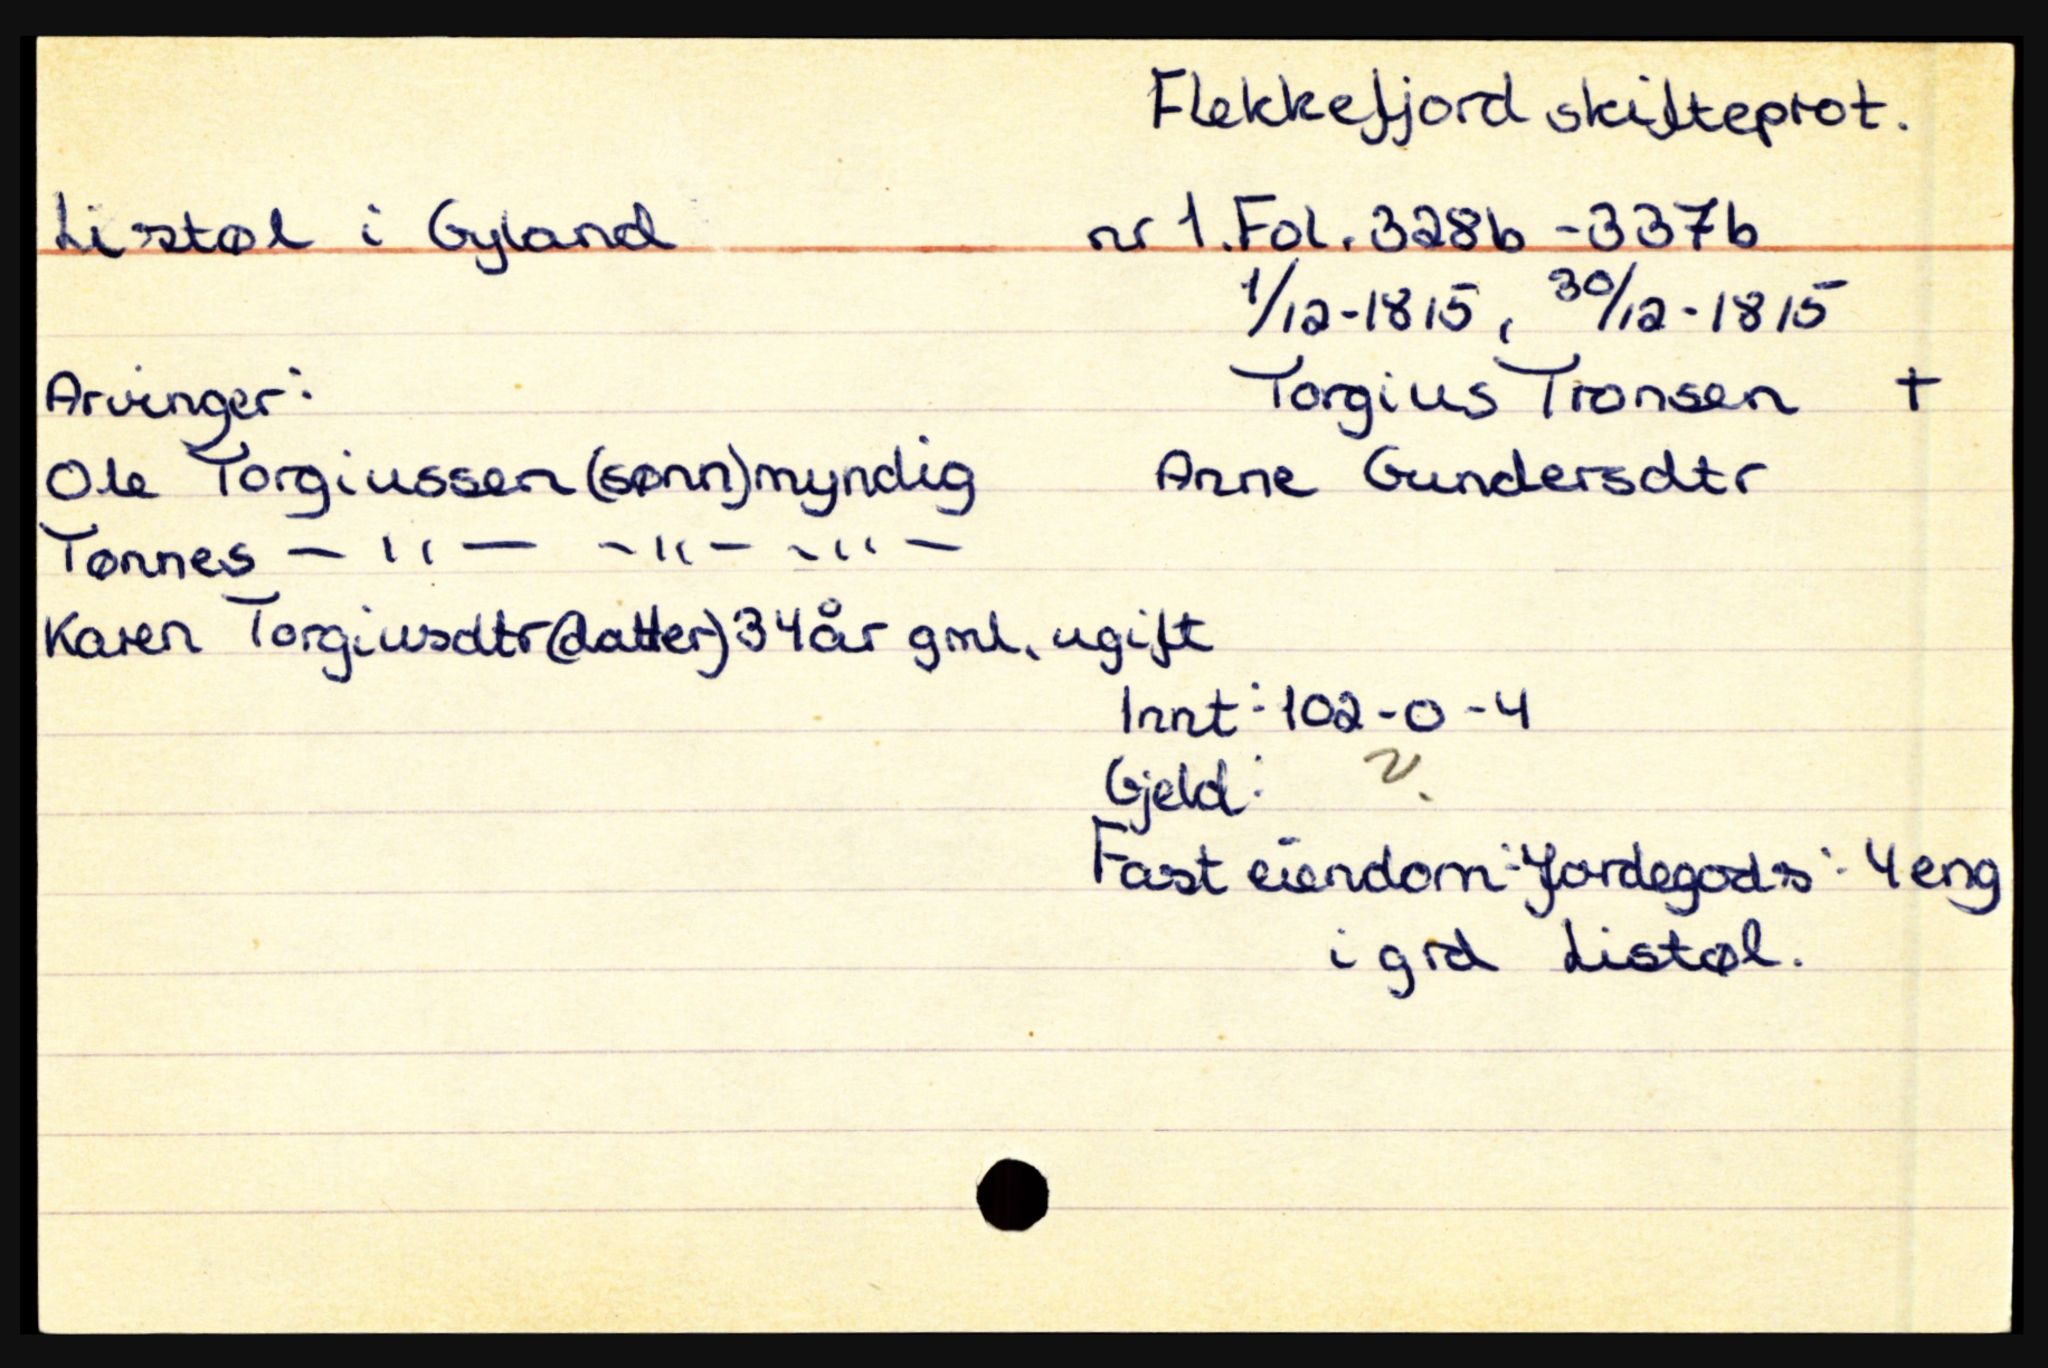 Flekkefjord skifteprot.
Listøl i Gyland nr 1. Fol. 328b - 337b
1/12-1815, 30/12-1815
Arvinger: Torgius Tronsen †
Ole Torgiussen (sønn) myndig Anne Gundersdtr
Tønnes — '' — - '' - - '' -
Karen Torgiusdtr (datter) 34 år gml. ugift
Innt: 102-0-4
Gjeld:
Fast eiendom: Jordegods: 4 eng
i grd Listøl.